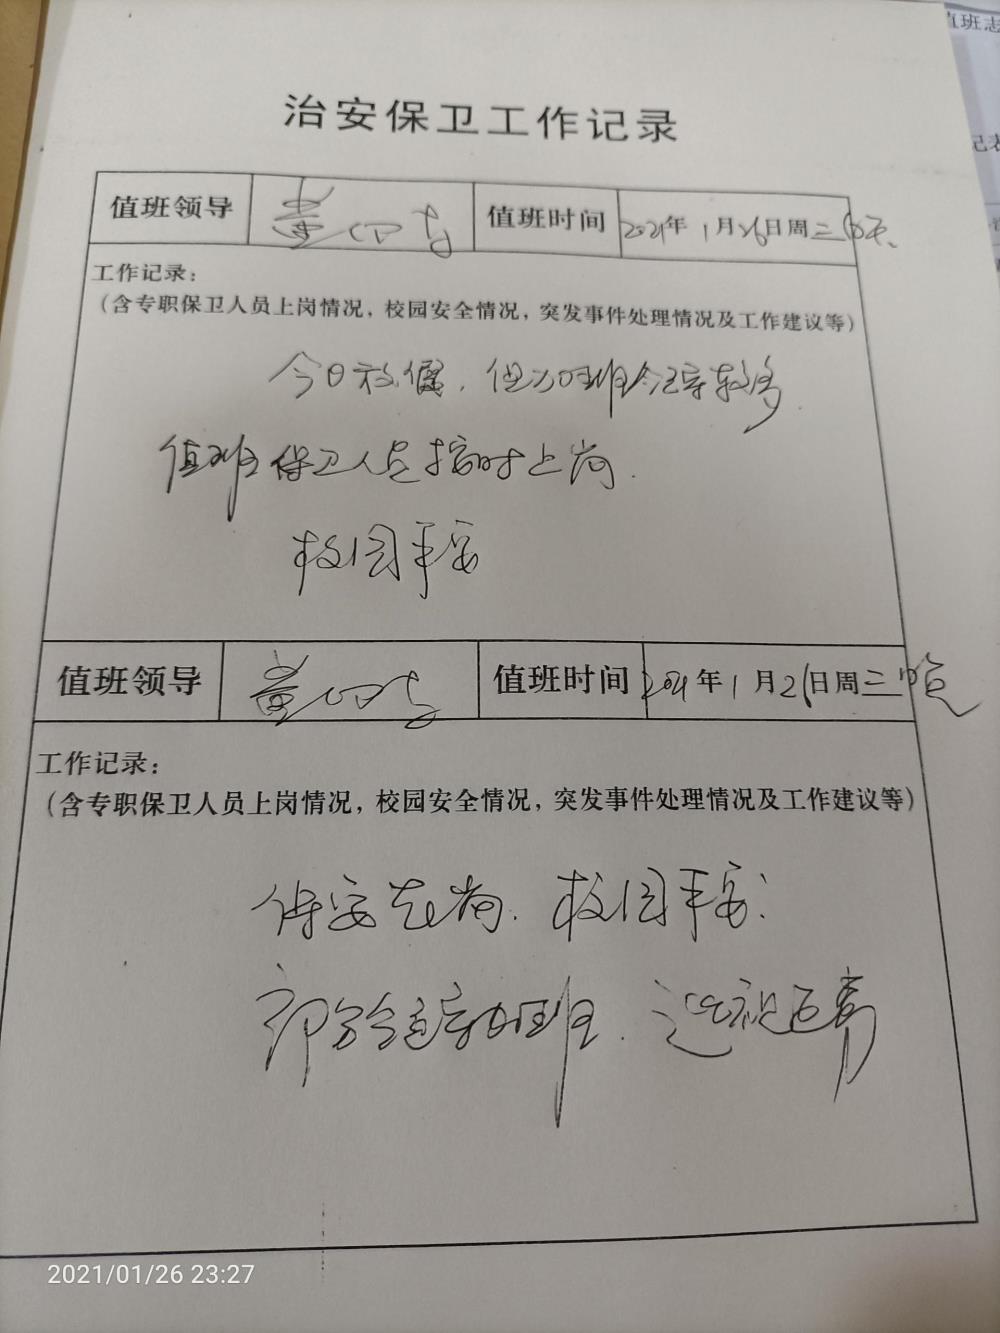 值班志
记表
治安保卫工作记录
值班领导 董 值班时间 2021年1月26日周二白天
工作记录：
（含专职保卫人员上岗情况，校园安全情况，突发事件处理情况及工作建议等）
今日放假，但加班 较多
值班保卫人员按时上岗.
校园平安
值班领导 董 值班时间 2021年1月26日周二晚
工作记录：
（含专职保卫人员上岗情况，校园安全情况，突发事件处理情况及工作建议等）
保安在岗. 校园平安.
部分 加班. 巡视
2021/01/26 23:27